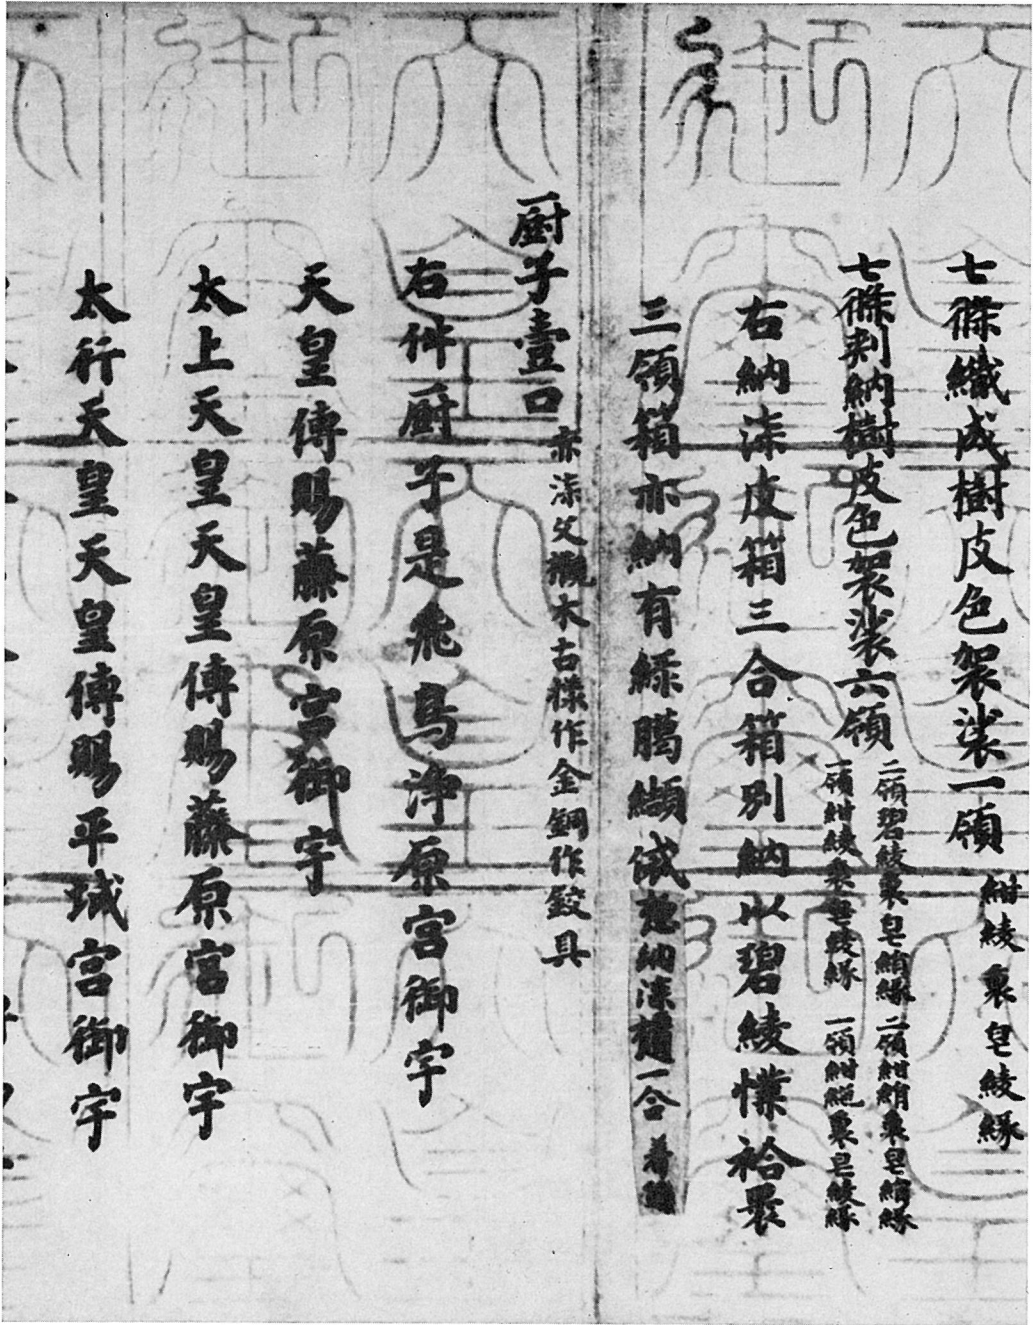 七條織成樹皮色袈裟一領 紺綾裏皂綾緣
七條刺納樹皮色袈裟六領 二領碧綾裏皂綃緣 二領紺綃裏皂綃緣
一領紺綾裏皂綾緣 一領紺絁裏皂綾緣
右納漆皮箱三合箱別納以碧綾幞袷裹
三領箱亦納有綠臈纈帒惣納漆櫃一合 着鏁
厨子壹口 赤漆文欟木古樣作金銅作鉸具
右件厨子是飛鳥淨原宮御宇
天皇傳賜藤原宮御宇
太上天皇天皇傳賜藤原宮御宇
太行天皇天皇傳賜平城宮御宇